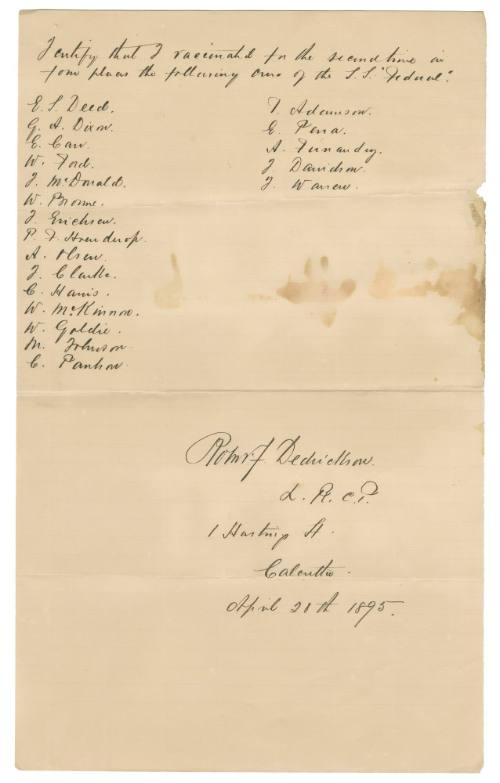 I certify that I vaccinated for the second time in
four places the following crew of the S.S. "Federal".
E. S. Deed.
G. A. Dixon.
E. Carr.
W. Ford.
J. McDonald.
W. Browne.
J. Erichsen.
P. F.
A. Olsen.
J. Clarke.
C. Harris.
W. McKinnon.
W. Goldie.
M. Johnson.
C. Pankow.
T. Adamson.
E. Pena.
A. Fernandez.
J. Davidson.
J. Warren.
Robt. F. Dedrickson.
L. R. C. P.
1 Hastings St.
Calcutta.
April 21th 1895.